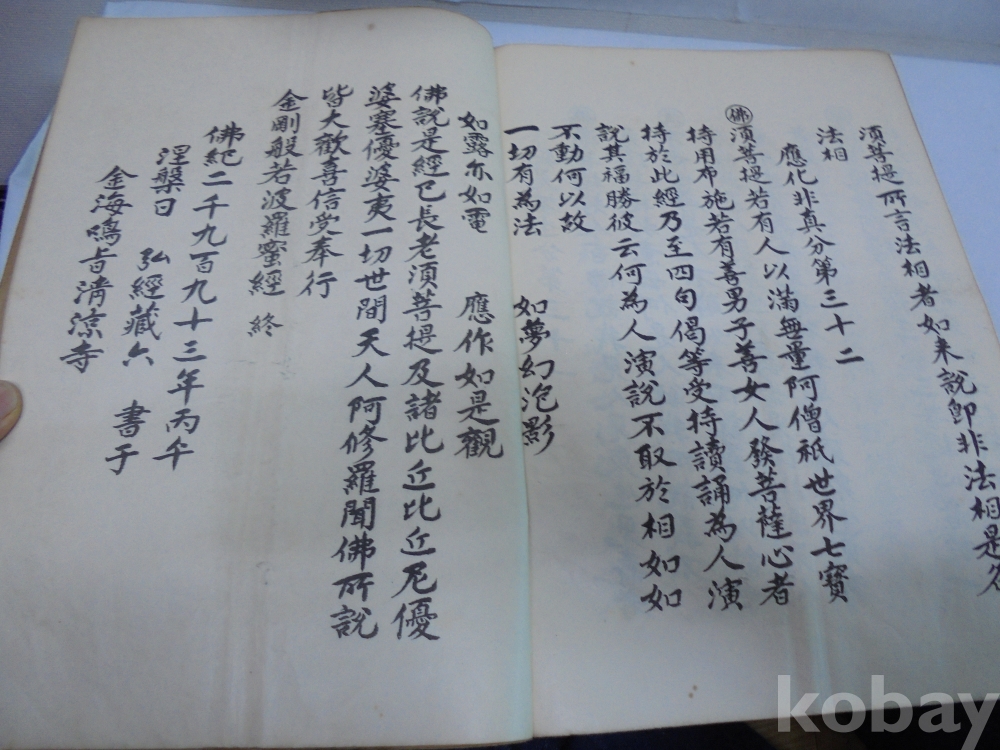 須菩提所言法相者如来說卽非法相是名
法相
應化非真分第三十二
佛 須菩提若有人以滿無量阿僧祇世界七寶
持用布施若有善男子善女人發菩薩心者
持於此經乃至四句偈等受持讀誦為人演
說其福勝彼云何為人演說不取於相如如
不動何以故
一切有為法 如夢幻泡影
如露亦如電 應作如是觀
佛說是經已長老須菩提及諸比丘比丘尼優
婆塞優婆夷一切世間天人阿修羅聞佛所說
皆大歡喜信受奉行
金剛般若波羅蜜經 終
佛紀二千九百九十三年丙午
涅槃日 弘經藏六 書于
金海鳴旨淸凉寺
kobay